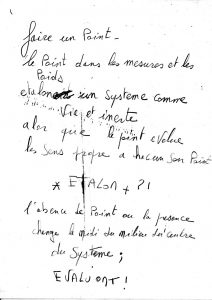 faire un Point -
le Point dans les mesures et les
Poids
etalon un Systeme comme
Vie et inerte
alors que le point evolue
les sens propre a chacun son Point
* ETALON + ?!
l'absence de Point ou la presence
change le midi du milieu du centre
du Systeme ;
EVALUONT !